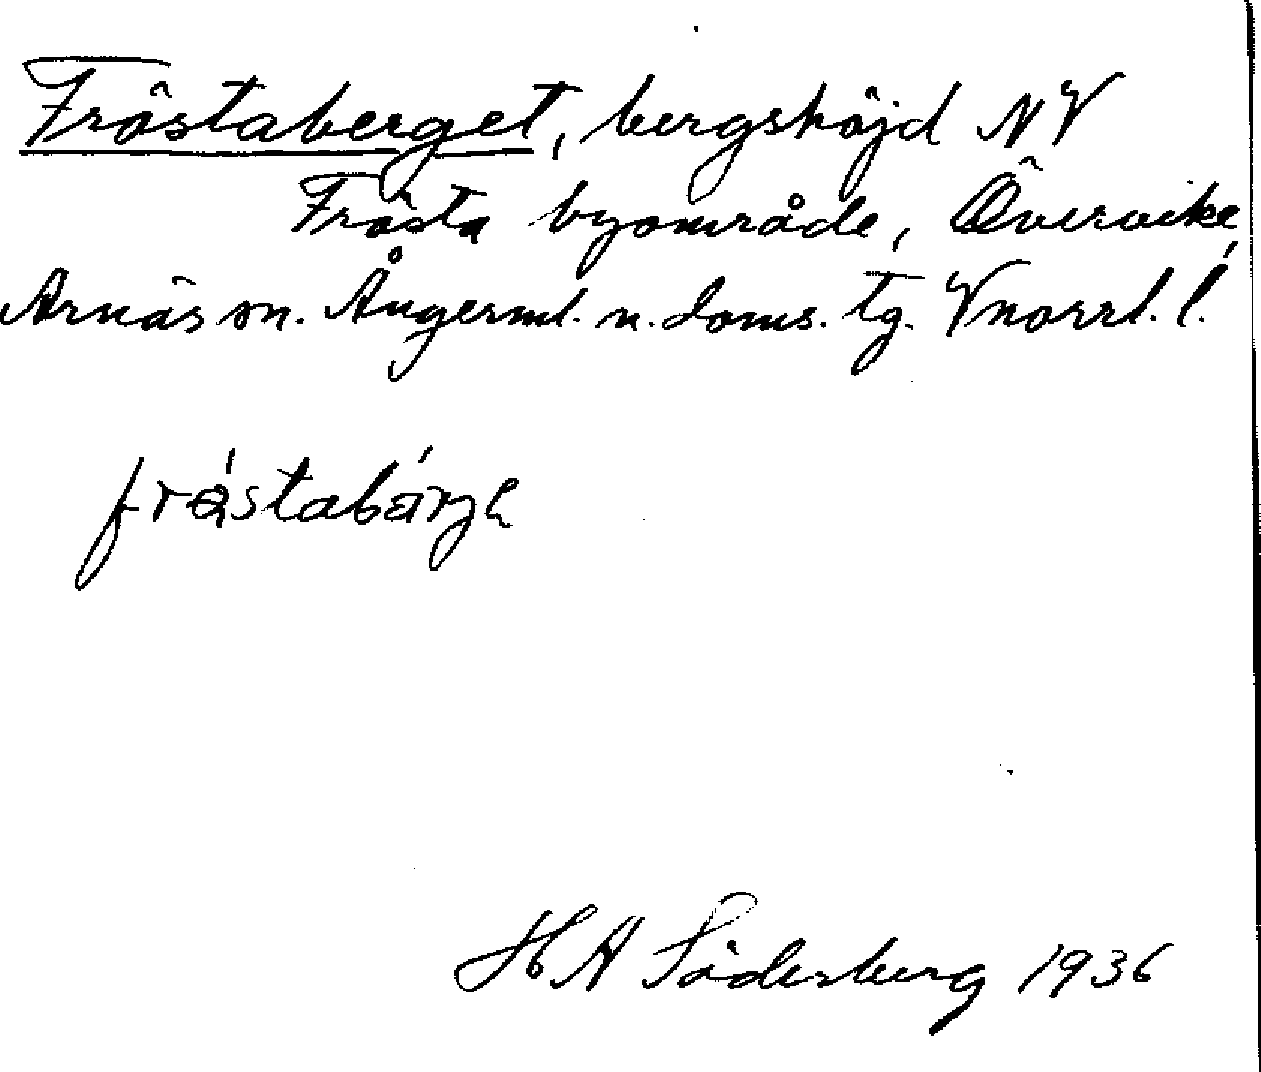 Fröstaberget, bergshöjd NV
Frösta byområde, Övervike,
Arnäs sn. Ångerml. n. doms. tg. Vnorrl. l.
H A Söderberg 1936